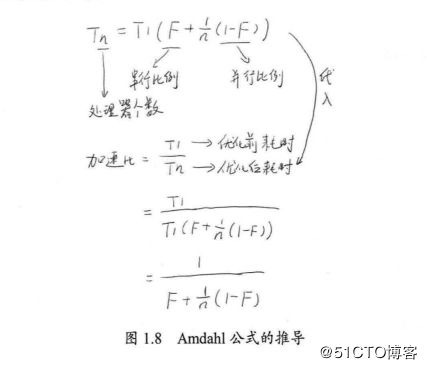 Tn = T1 (F + 1/n (1-F))
串行比例 并行比例 代入
处理器个数
加速比 = T1/Tn → 优化前耗时
→ 优化后耗时
= T1 / T1 (F + 1/n (1-F))
= 1 / F + 1/n (1-F)
图 1.8 Amdahl 公式的推导
@51CTO博客